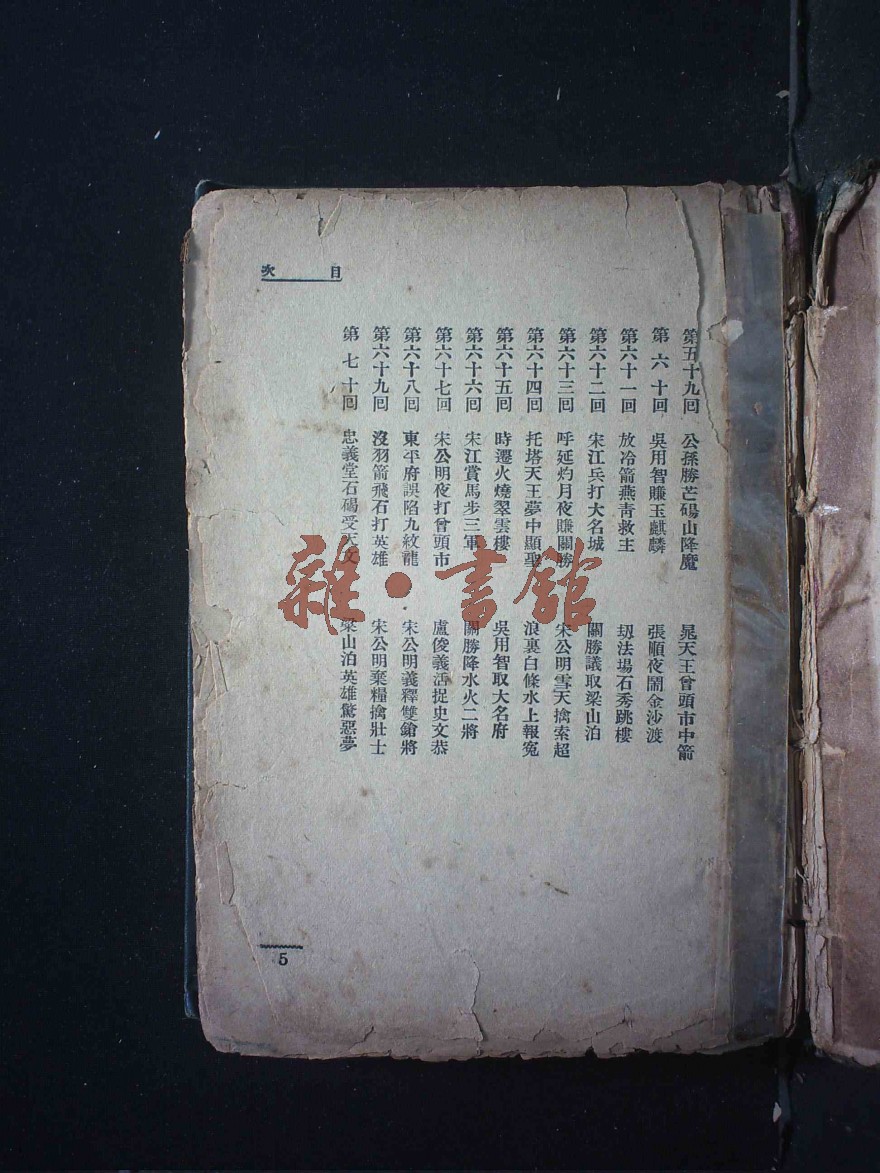 目次
第五十九回 公孫勝芒碭山降魔 晁天王曾頭市中箭
第六十回 吳用智賺玉麒麟 張順夜鬧金沙渡
第六十一回 放冷箭燕青救主 刼法場石秀跳樓
第六十二回 宋江兵打大名城 關勝議取梁山泊
第六十三回 呼延灼月夜賺關勝 宋公明雪天擒索超
第六十四回 托塔天王夢中顯聖 浪裏白條水上報寃
第六十五回 時遷火燒翠雲樓 吳用智取大名府
第六十六回 宋江賞馬步三軍 關勝降水火二將
第六十七回 宋公明夜打曾頭市 盧俊義活捉史文恭
第六十八回 東平府誤陷九紋龍 宋公明義釋雙鎗將
第六十九回 沒羽箭飛石打英雄 宋公明棄糧擒壯士
第七十回 忠義堂石碣受天文 梁山泊英雄驚惡夢
5
雜·書館